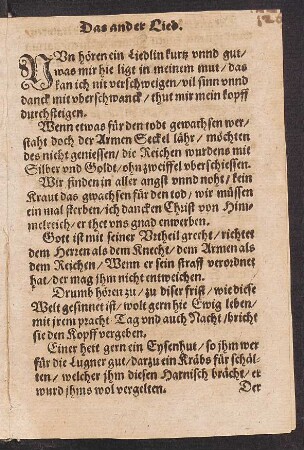 Das ander Lied.
NUn hören ein Liedlin kurtz vnnd gut/
was mir hie ligt in meinem mut/das
kan ich nit verschweigen/vil sinn vnnd
danck mit vberschwanck/thut mir mein kopff
durchsteigen.
Wenn etwas für den todt gewachsen wer/
staht doch der Armen Seckel lähr/möchten
des nicht geniessen/die Reichen wurdens mit
Silber vnd Goldt/ohn zweiffel vberschiessen.
Wir finden in aller angst vnnd noht/kein
Kraut das gwachsen für den tod/wir müssen
ein mal sterben/ich dancken Christ von Him-
melreich/er thet vns gnad enwerben.
Gott ist mit seiner Vrtheil grecht/richtet
dem Herren als dem Knecht/dem Armen als
dem Reichen/Wenn er sein straff verordnet
hat/der mag jhm nicht entweichen.
Drumb hören zu/zu diser frist/wie diese
Welt gesinnet ist/wolt gern hie Ewig leben/
mit jrem pracht Tag vnd auch Nacht/bricht
sie den Kopff vergeben.
Einer hett gern ein Eysenhut/so jhm wer
für die Lugner gut/darzu ein Kräbs für schält-
ten/welcher jhm diesen Harnisch brächt/er
wurd jhms wol vergelten.
Der